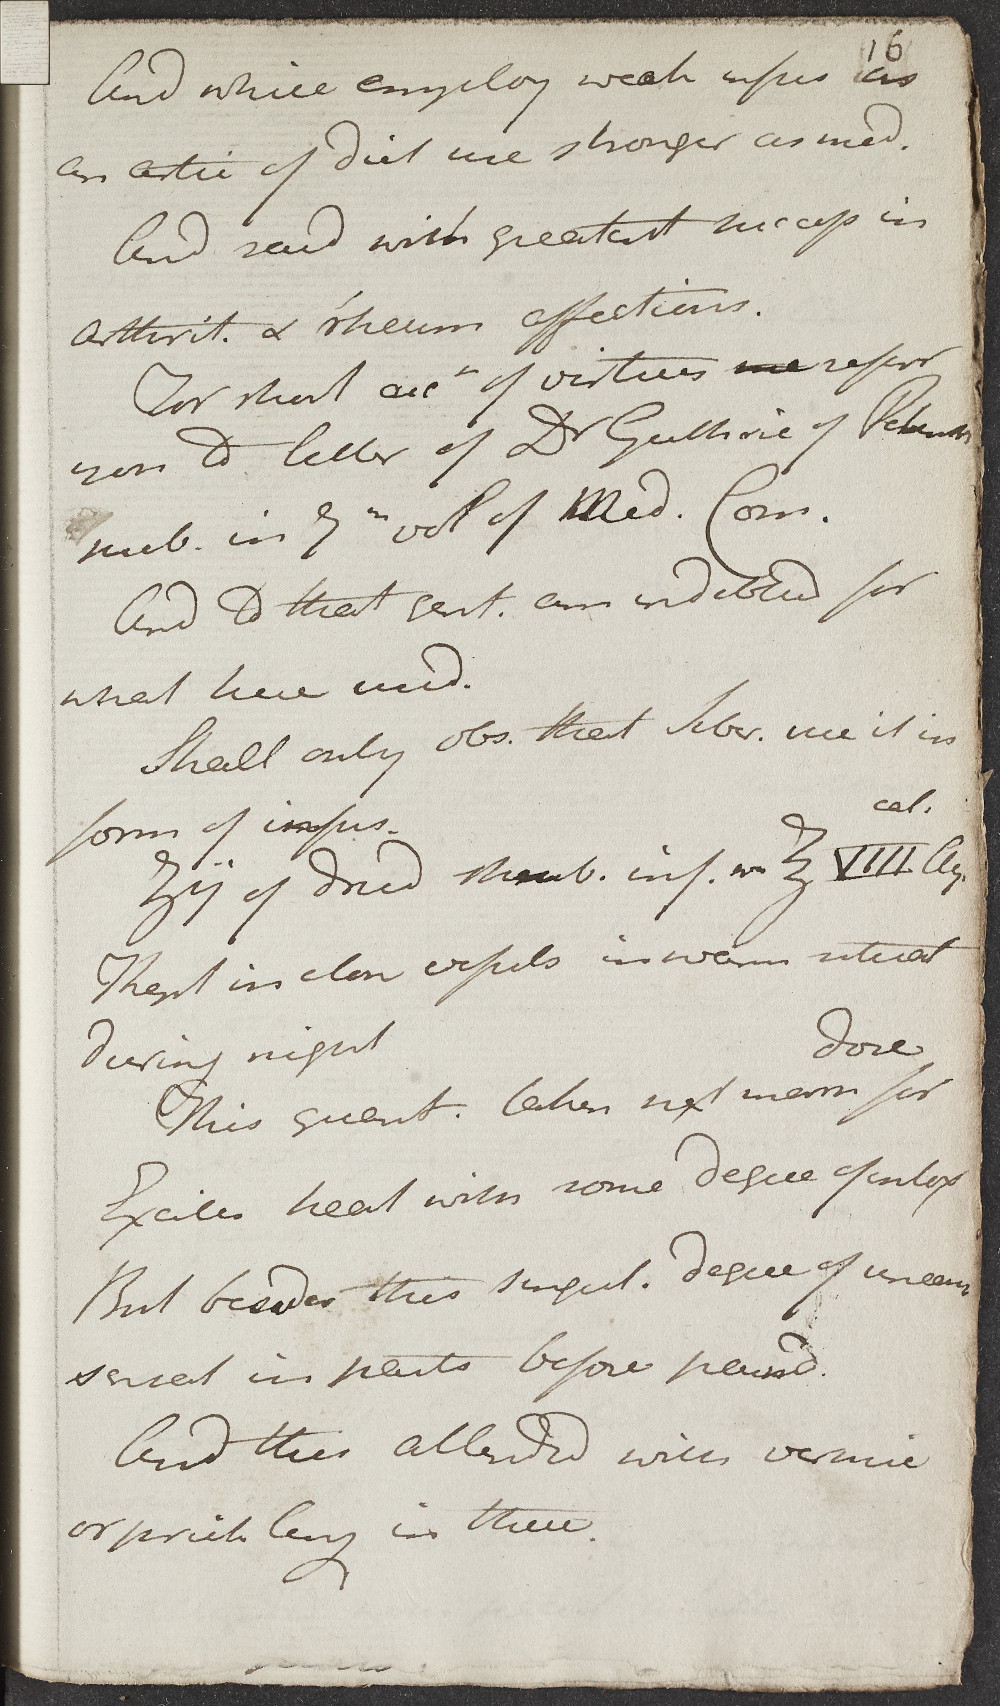 16
And while employ weak infus as
an artic of diet use stronger as med.
And said with greatest success in
arthrit. & rheum affections.
For short accn of virtues refer
you to letter of Dr Guthrie of Petersb
pub. in 7m vol of Med. Com.
And to that gent. am indebted for
what have used.
Shall only obs. that Siber. use it in
form of infus.
cal.
Ʒij of dried shrub. inf. in ℥ VIIII Aq.
Kept in close vessels in warm situat
during night
dose
This quant. taken next morn for
Excites heat with some degree of intox
But besides this singul. degree of uneasy
sensat in parts before pained.
And this attended with vermic
or prickling in these.